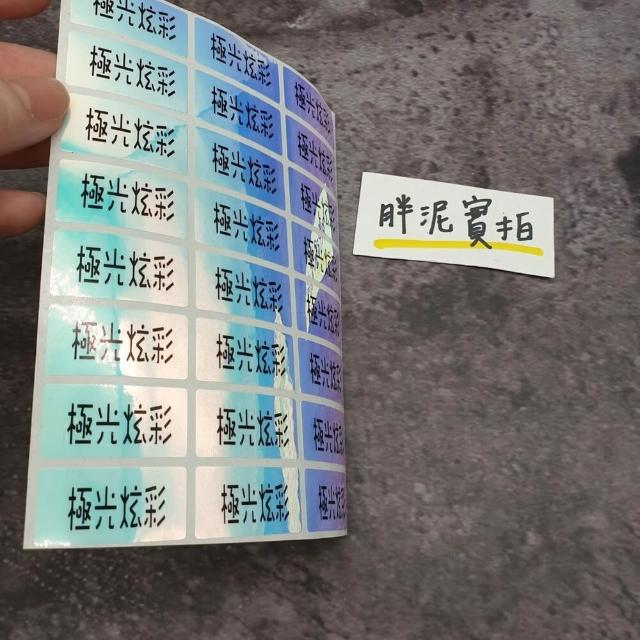 極光炫彩 極光炫彩
極光炫彩 極光炫彩 極光炫彩
極光炫彩 極光炫彩 極光炫彩
極光炫彩 極光炫彩 極光炫彩
極光炫彩 極光炫彩 極光炫彩
極光炫彩 極光炫彩 極光炫彩
極光炫彩 極光炫彩 極光炫彩
極光炫彩 極光炫彩 極光炫彩
胖泥實拍